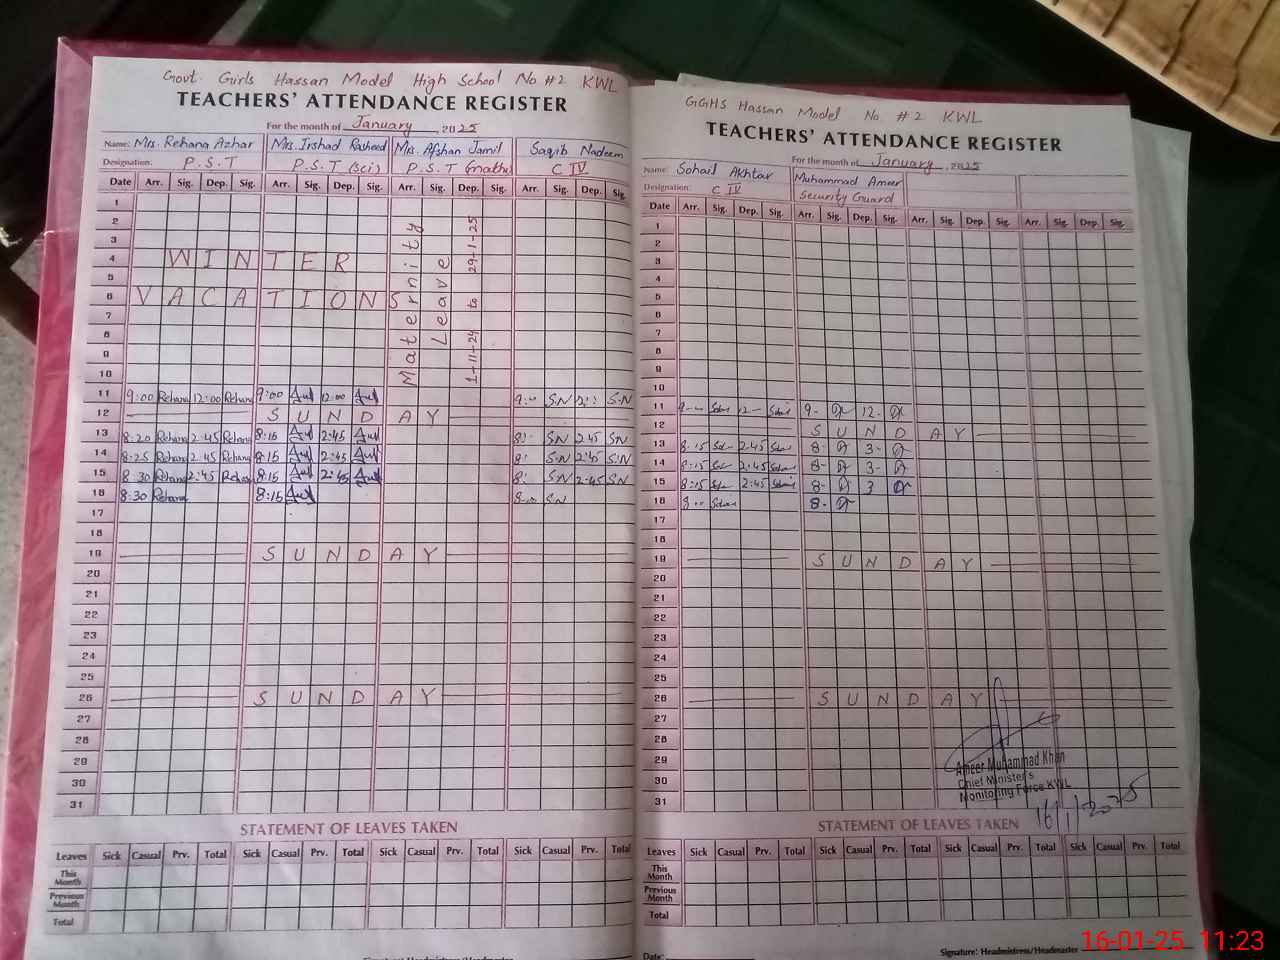 Govt. Girls Hassan Model High School No #2 KWL
TEACHERS' ATTENDANCE REGISTER
For the month of January, 2025
Name: Mrs. Rehana Azhar Mrs. Irshad Rasheed Mrs. Afshan Jamil Saqib Nadeem
Designation: P.S.T P.S.T (sci) P.S.T (math) C IV
Date Arr. Sig. Dep. Sig. Arr. Sig. Dep. Sig. Arr. Sig. Dep. Sig. Arr. Sig. Dep. Sig.
1
2
3
4 WINTER
5
6 VACATIONS
7
8
9
10
Maternity
Leave
1-11-24 to 29-1-25
11 9:00 Rehana 12:00 Rehana 9:00 12:00 9:00 SN SN
12 SUNDAY
13 8:20 Rehana 2:45 Rehana 8:15 2:45 8: SN 2:45 SN
14 8:25 Rehana 2:45 Rehana 8:15 2:45 8: SN 2:45 SN
15 8:30 Rehana 2:45 Rehana 8:15 2:45 8: SN 2:45 SN
16 8:30 Rehana 8:15 8:00 SN
17
18
19 SUNDAY
20
21
22
23
24
25
26 SUNDAY
27
28
29
30
31
STATEMENT OF LEAVES TAKEN
Leaves Sick Casual Prv. Total Sick Casual Prv. Total Sick Casual Prv. Total Sick Casual Prv. Total
This Month
Previous Month
Total
GGHS Hassan Model No #2 KWL
TEACHERS' ATTENDANCE REGISTER
For the month of January, 2025
Name: Sohail Akhtar Muhammad Ameer
Designation: C IV Security Guard
Date Arr. Sig. Dep. Sig. Arr. Sig. Dep. Sig. Arr. Sig. Dep. Sig. Arr. Sig. Dep. Sig.
1
2
3
4
5
6
7
8
9
10
11 9- 12- 9- 12-
12 SUNDAY
13 8:15 2:45 8- 3-
14 8:15 2:45 8- 3-
15 8:15 2:45 8- 3
16 8-
17
18
19 SUNDAY
20
21
22
23
24
25
26 SUNDAY
27
28
29
30
31
Ameer Muhammad Khan
Chief Minister's
Monitoring Force KWL
16/1/2025
STATEMENT OF LEAVES TAKEN
Leaves Sick Casual Prv. Total Sick Casual Prv. Total Sick Casual Prv. Total Sick Casual Prv. Total
This Month
Previous Month
Total
Date:
Signature: Headmistress/Headmaster
16-01-25 11:23